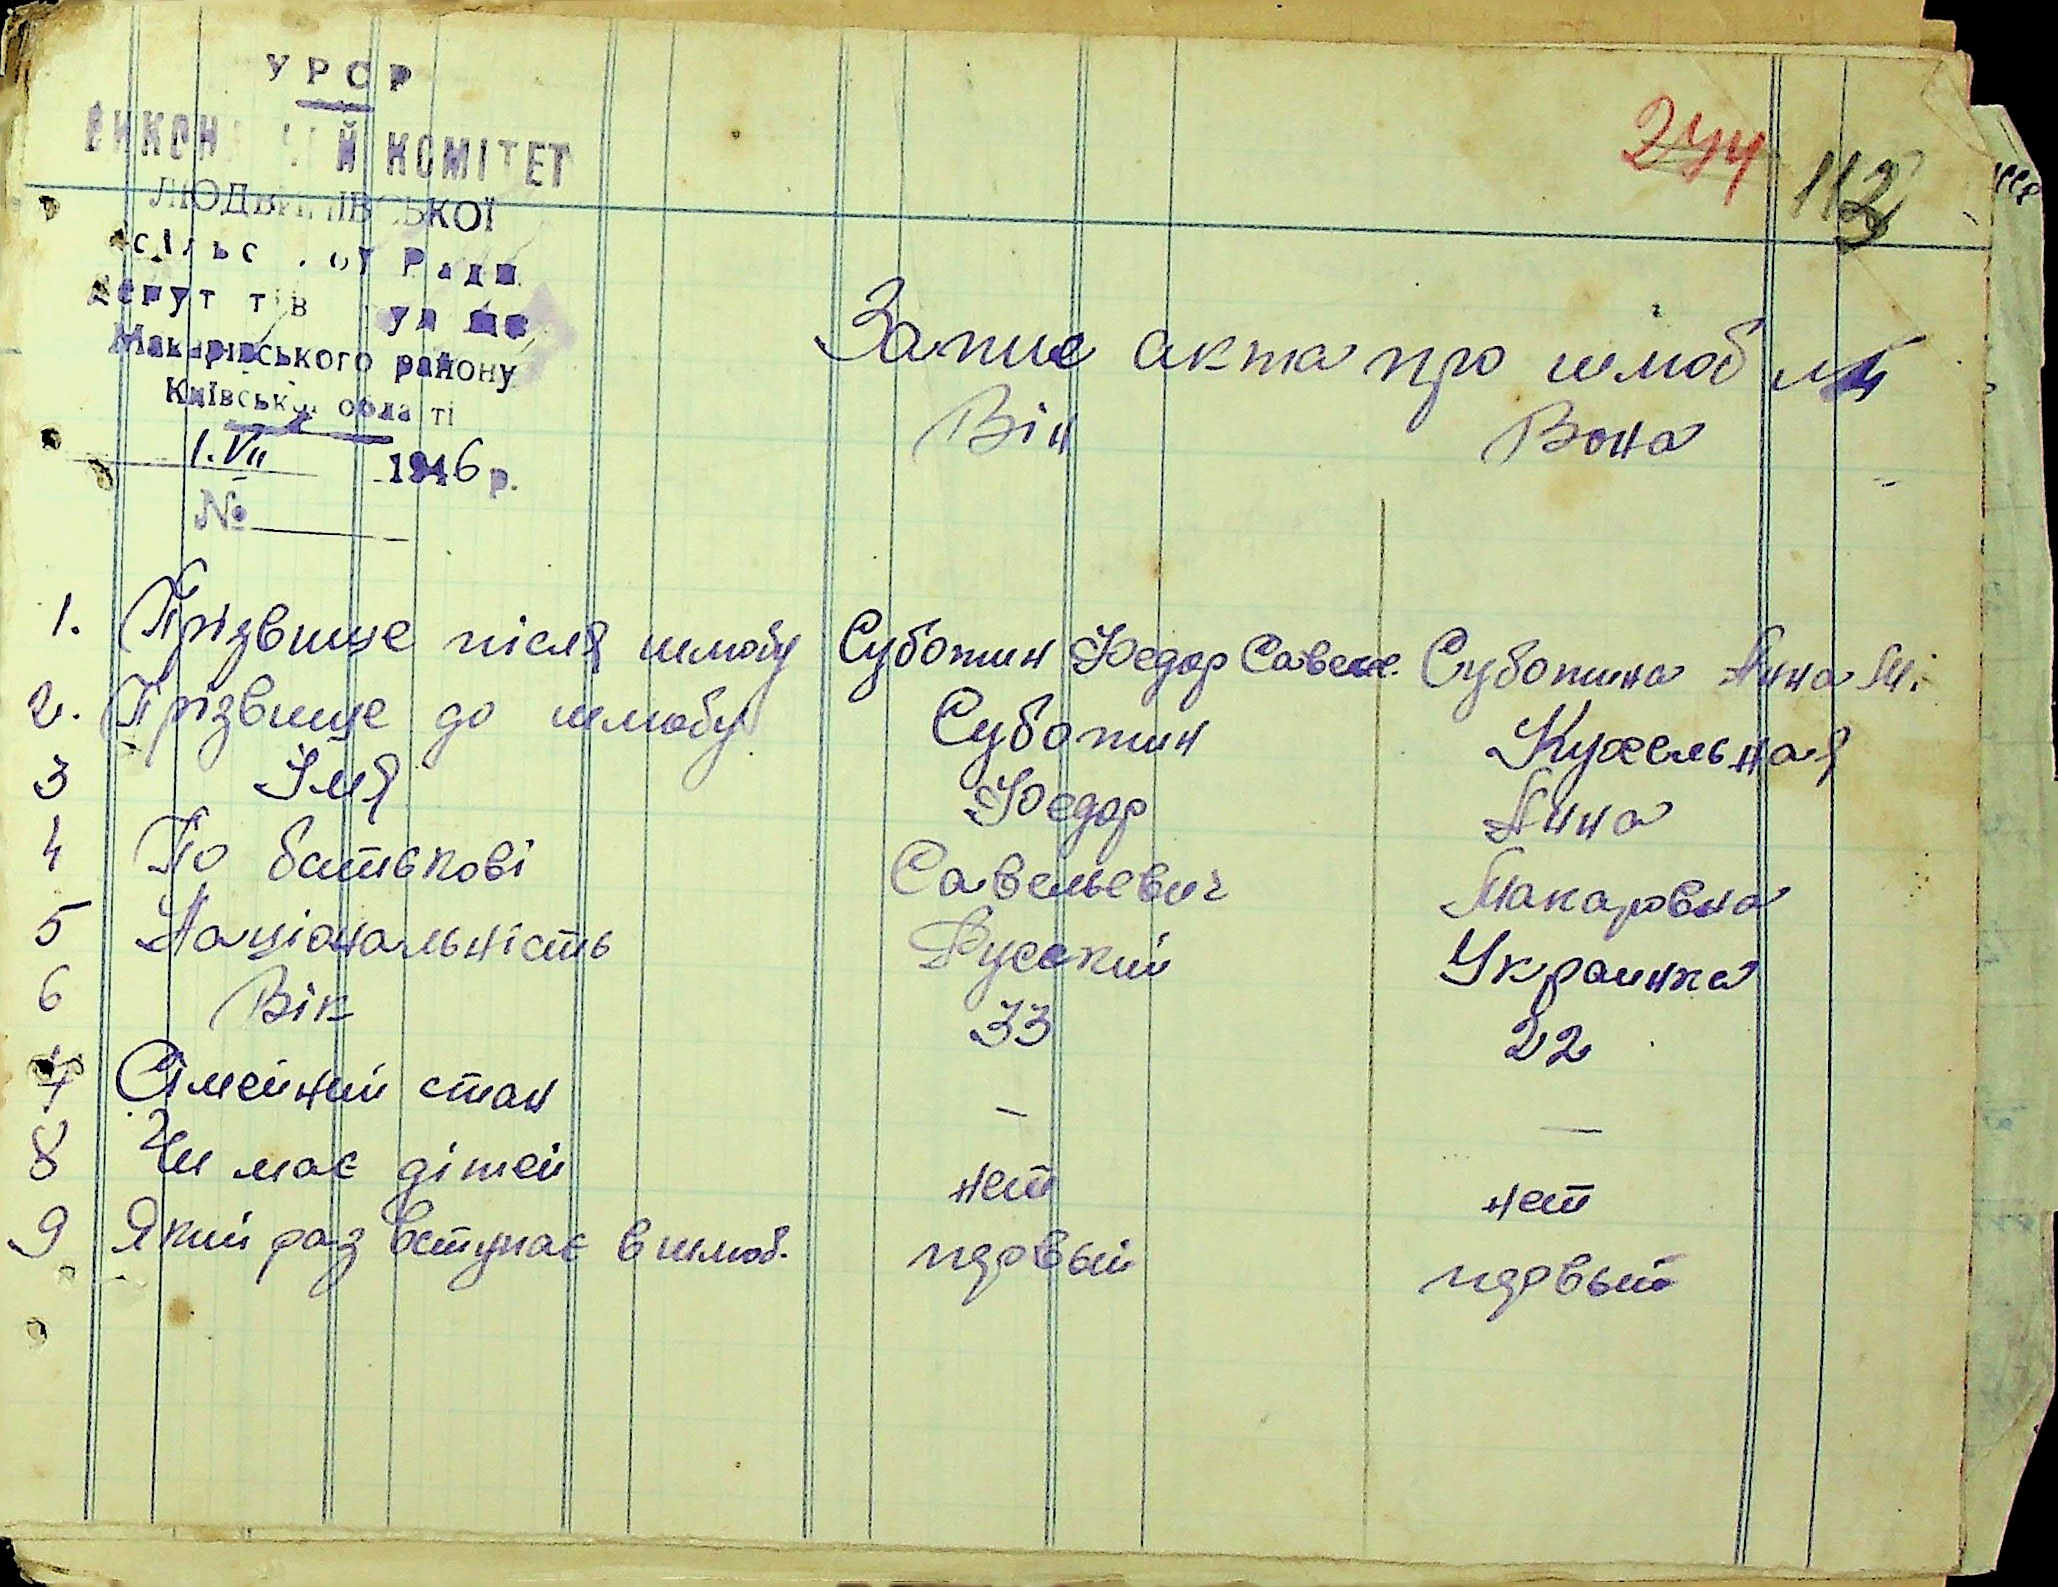 УРСР
ВИКОН Й КОМІТЕТ
ЛЮДВИНІВСЬКОЇ
сільс ої Ради
депут тів
Макарівського району
Київської обла ті
1.VII 1946 р.
№
244 112
Запис акта про шлюб №
Він Вона
1. Прізвище після шлюбу Суботин Федор Савел. Суботина Анна М.
2. Прізвище до шлюбу Суботин Кужельная
3 Імя Федор Анна
4 По батькові Савельевич Макаровна
5 Національність Русский Украинка
6 Вік 33 22
7 Сімейний стан — —
8 Чи має дітей нет нет
9 Який раз вступає в шлюб. первый первый